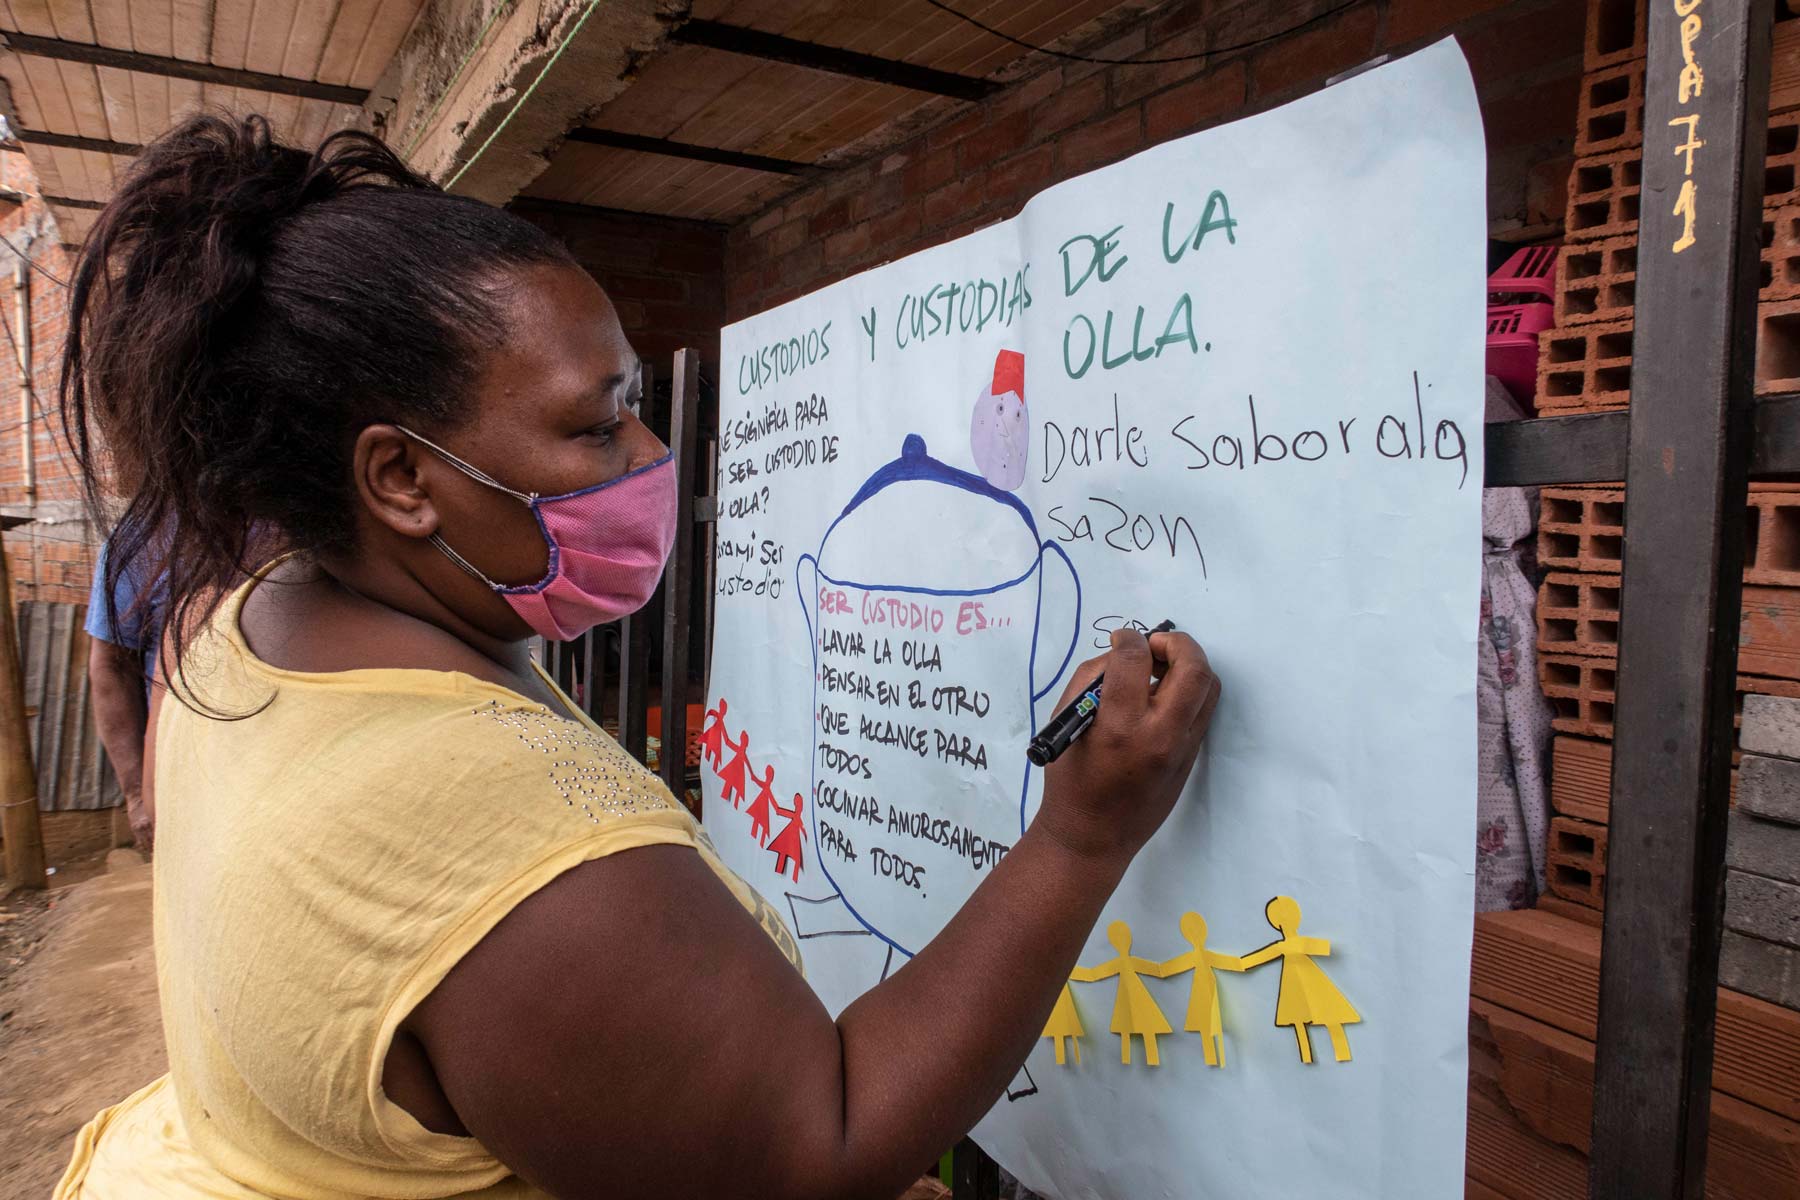 CUSTODIOS Y CUSTODIAS DE LA
OLLA.
SIGNIFICA PARA
SER CUSTODIO DE
OLLA?
mi Ser
custodio
SER CUSTODIO ES...
·LAVAR LA OLLA
·PENSAR EN EL OTRO
·QUE ALCANCE PARA
TODOS
·COCINAR AMOROSAMENTE
PARA TODOS.
Darle Sabor ala
sazon
71